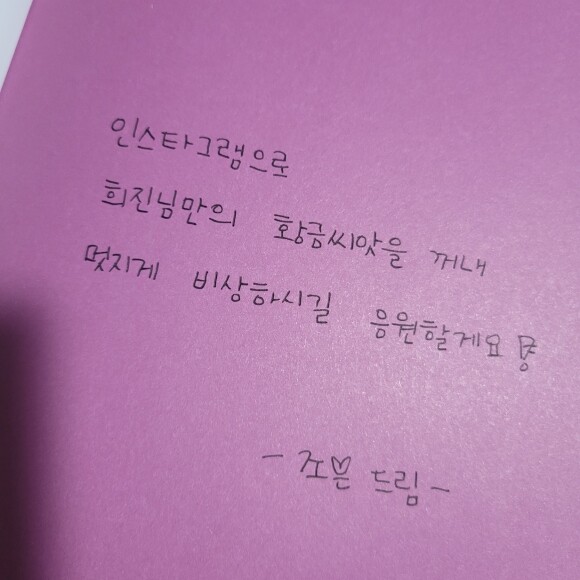 인스타그램으로
희진님만의 황금씨앗을 꺼내
멋지게 비상하시길 응원할게요!
- 드림 -